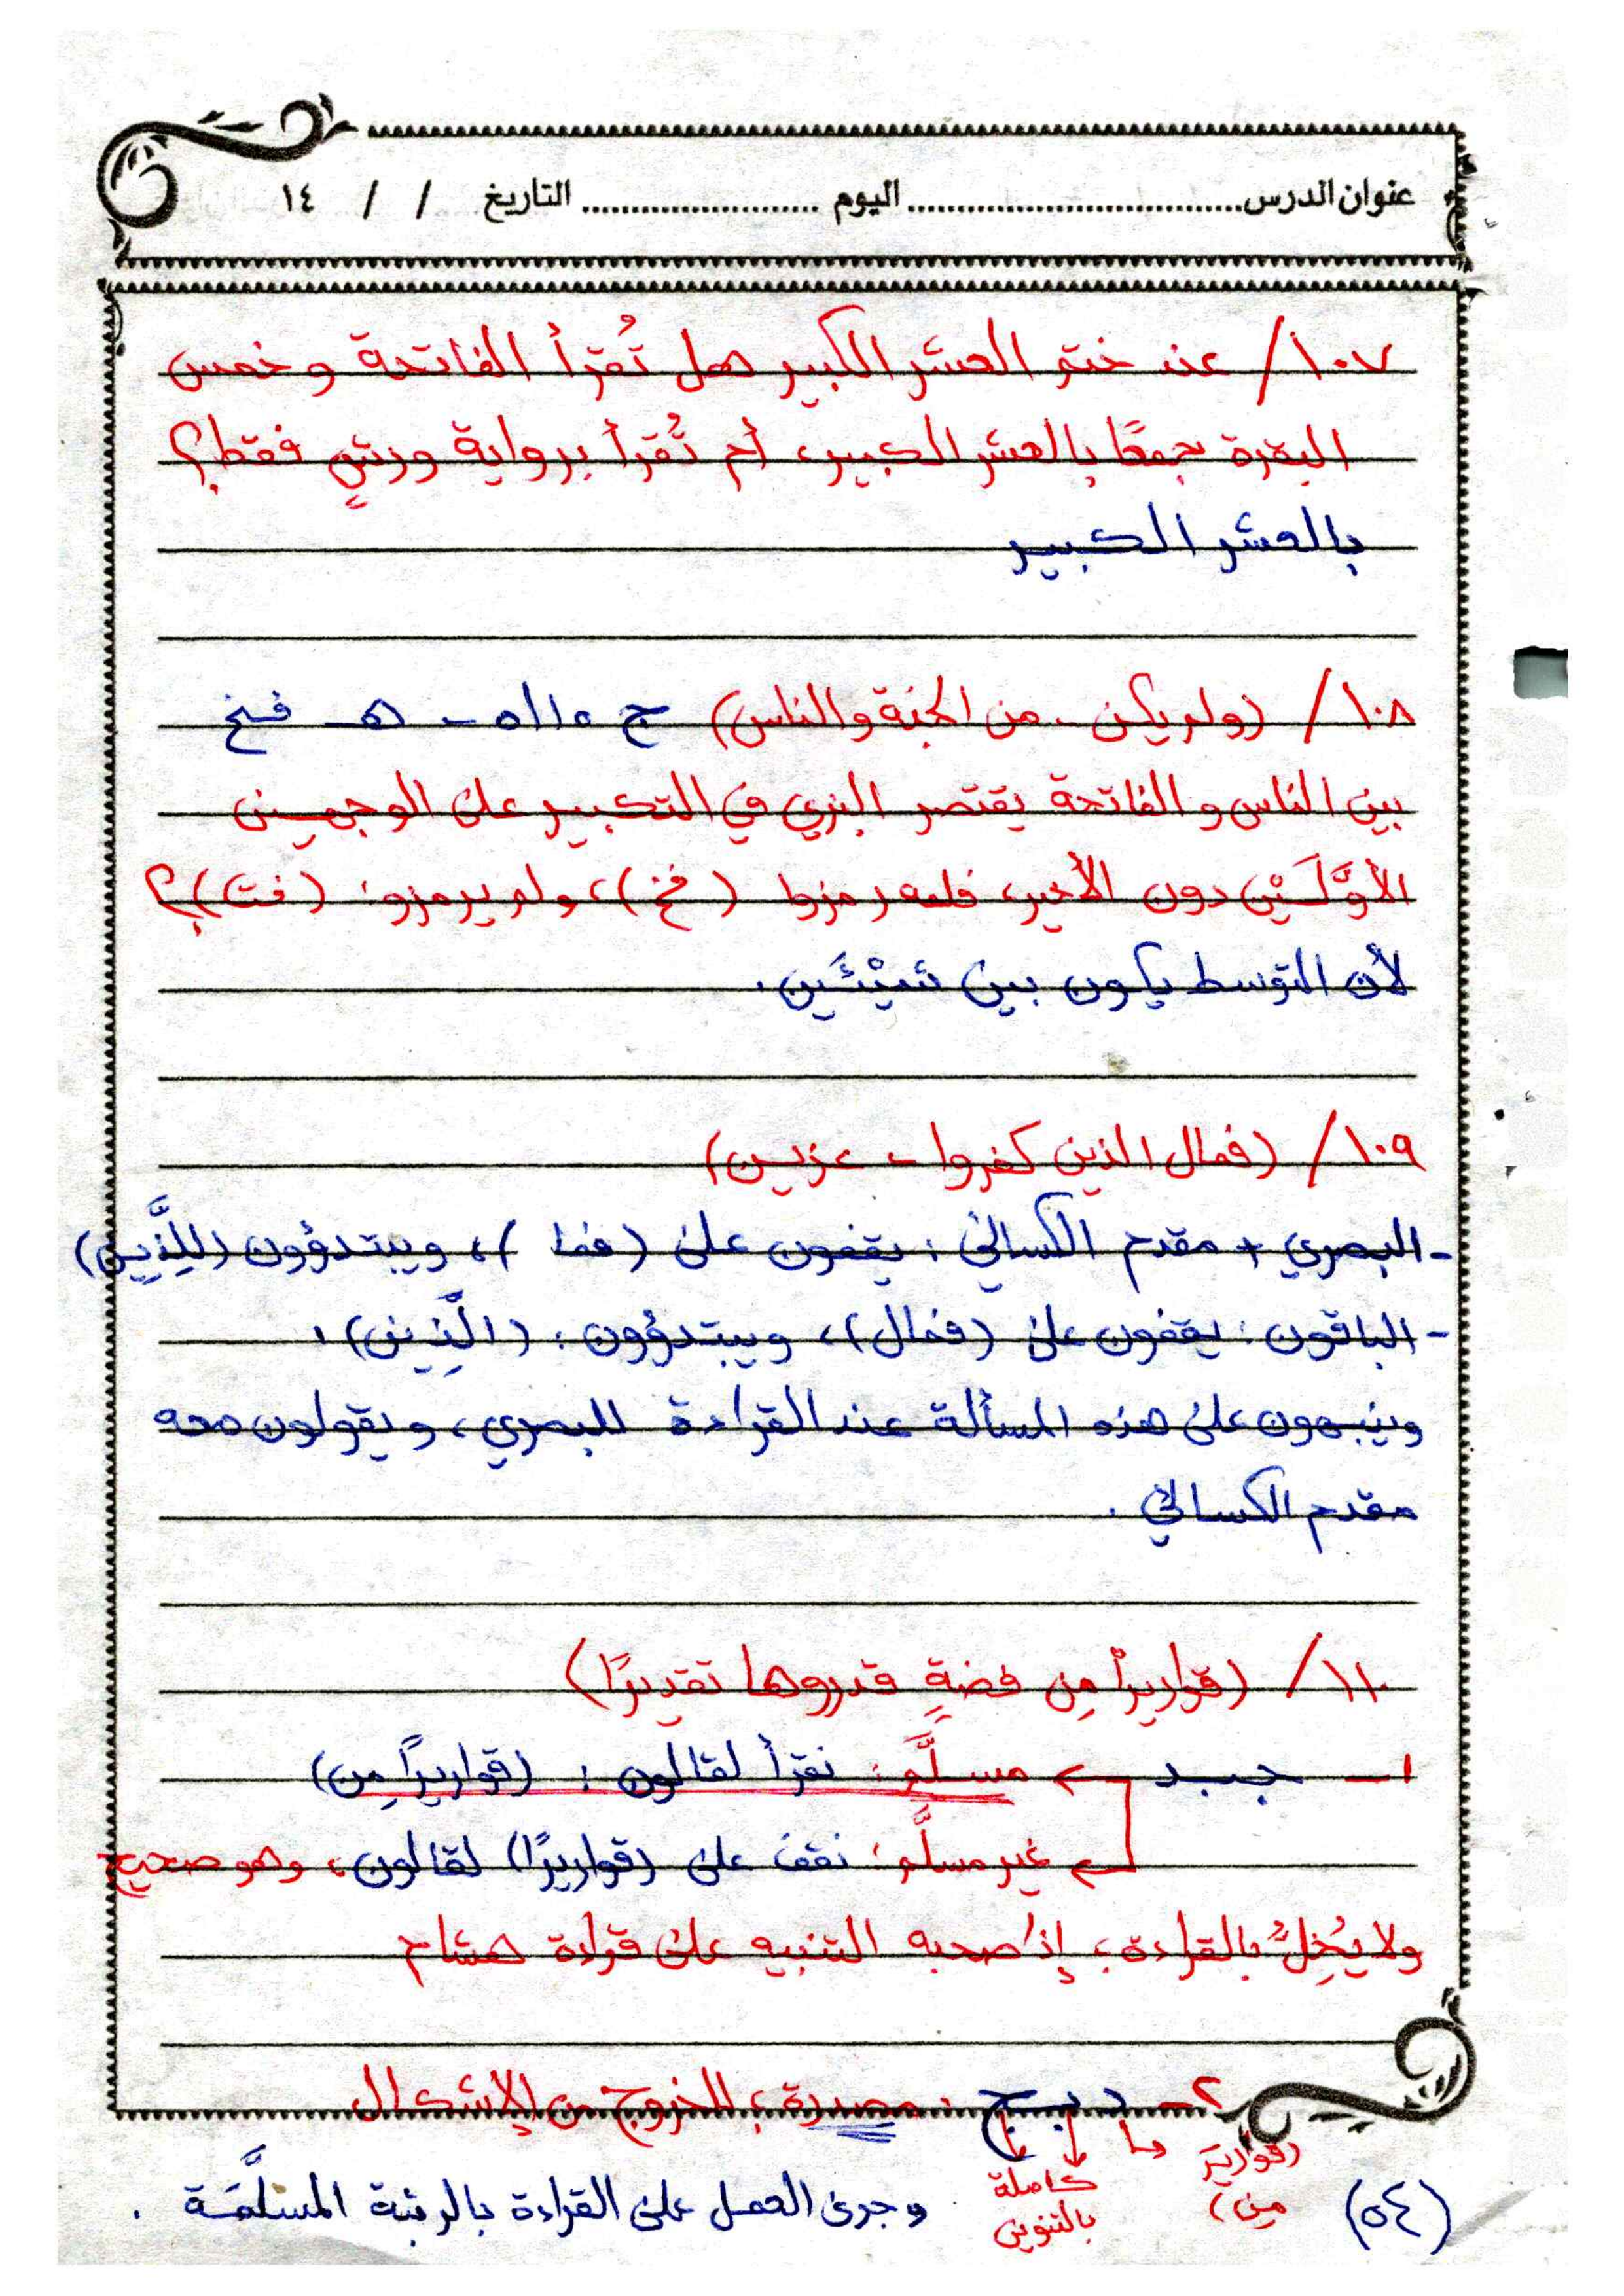 عنوان الدرس........................ اليوم .................. التاريخ / / ١٤
١٠٧/ عند ختم العشر الكبير هل تُقرأ الفاتحة و خمس
البقرة جمعًا بالعشر الكبير، أم تُقرأ برواية ورشٍ فقط؟
بالعشر الكبير
١٠٨/ (ولم يكن .. من الجنة والناس) ج
بين الناس و الفاتحة يقتصر البزي في التكبير على الوجهين
الأوَّلَيْن دون الأخير، فلمه رمزوا (فخ)، ولم يرمزوا: (فت)؟
لأن التوسط يكون بين شيْئَين.
١٠٩/ (فمال الذين كفروا - عزين)
- البصري + مقدم الكسائي: يقفون على (فما)، ويبتدؤون (لِلَّذِين)
- الباقون: يقفون على (فمال)، ويبتدؤون: (الَّذِين).
وينبهون على هذه المسألة عند القراءة للبصري، ويقولون معه
مقدم الكسائي.
١١٠/ (قواريرًا من فضةٍ قدروها تقديرًا)
١- جبد مسلَّم: نقرأ لقالون: (قواريرًا مِن)
غير مسلَّم: نقف على (قواريرًا) لقالون، وهو صحيح
ولا يُخِلُّ بالقراءة؛ إذا صحبه التنبيه على قراءة هشام
٢- دبج: مصدرة؛ للخروج من الإشكال
(قواريرَ من) كاملة بالتنوين
وجرى العمل على القراءة بالرتبة المسلَّمَة.
(٥٤)